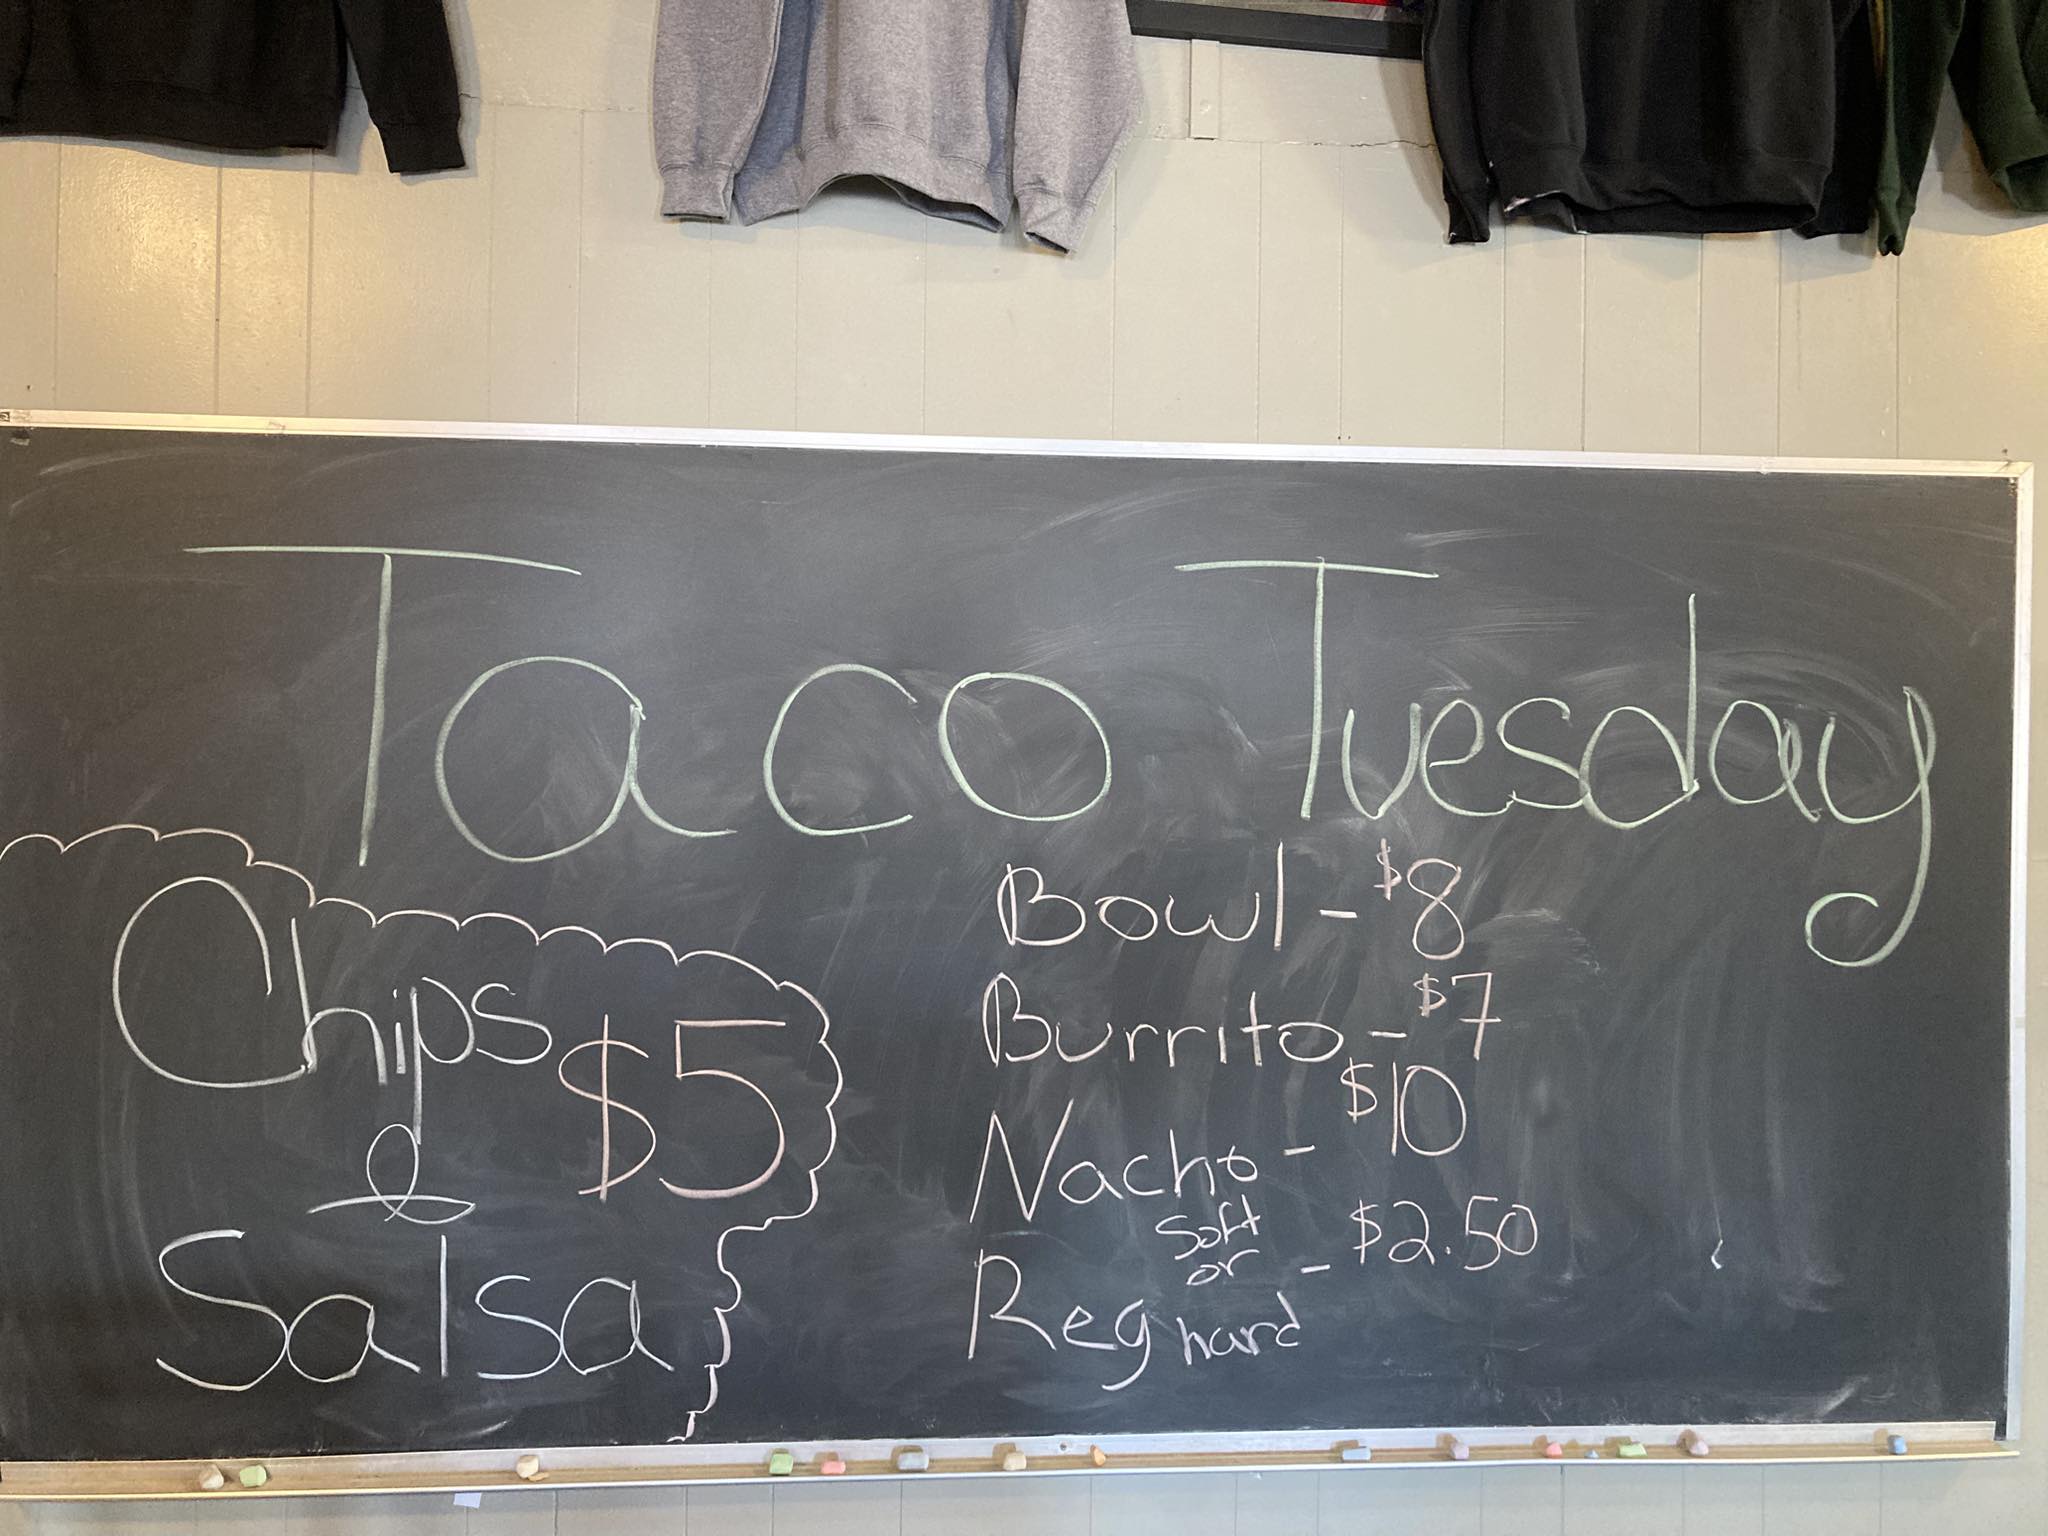 Taco Tuesday
Chips
&
Salsa
$5
Bowl - $8
Burrito - $7
Nacho - $10
Reg soft or hard - $2.50